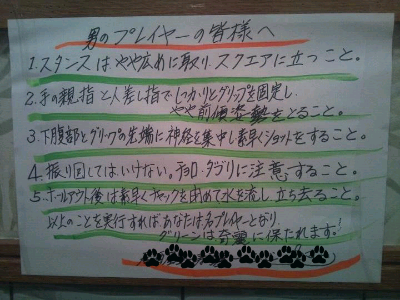 男のプレイヤーの皆様へ
1.スタンスはやや広めに取り、スクエアに立つこと。
2.手の親指と人差し指でしっかりとグリップを固定し、
やや前傾姿勢をとること。
3.下腹部とグリップの先端に神経を集中し素早くショットをすること。
4.振り回してはいけない。チョロ・ダフリに注意すること。
5.ホールアウト後は素早くチャックを閉めて水を流し、立ち去ること。
以上のことを実行すればあなたは名プレイヤーとなり、
グリーンは奇麗に保たれます。!